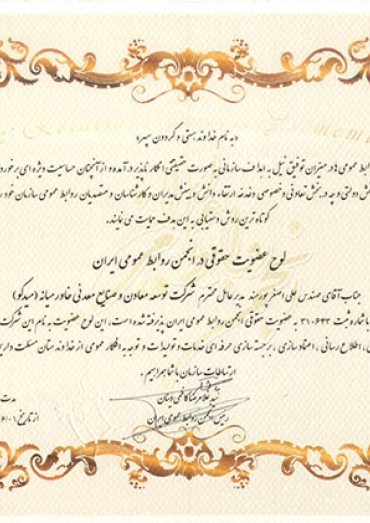 «به نام خداوند هستی و گردون سپهر»
روابط عمومی ها در میزان توفیق نیل به اهداف سازمانی به صورت حقیقتی انکار ناپذیر درآمده و از آنچنان حساسیت ویژه ای برخوردار
بخش دولتی و چه در بخش تعاونی و خصوصی دغدغه ارتقاء دانش و بینش مدیران و کارشناسان و متصدیان روابط عمومی سازمان خود را
کوتاه ترین روش دستیابی به این هدف حمایت می نمایند.
لوح عضویت حقوقی در انجمن روابط عمومی ایران
جناب آقای مهندس علی اصغر پورمند مدیرعامل محترم شرکت توسعه معادن و صنایع معدنی خاورمیانه (میدکو)
با شماره ثبت ۳۱۰۶۴۳ به عضویت حقوقی انجمن روابط عمومی ایران پذیرفته شده است، این لوح عضویت به نام این شرکت
، اطلاع رسانی ، اعتمادسازی ، برجسته سازی حرفه ای خدمات و تولیدات و توجه به افکار عمومی از خداوند منان مسئلت داریم
ارتباطات سازمان با شما همراهیم .
سید غلامرضا کاظمی دینان
رئیس انجمن روابط عمومی ایران
مدت
از تاریخ